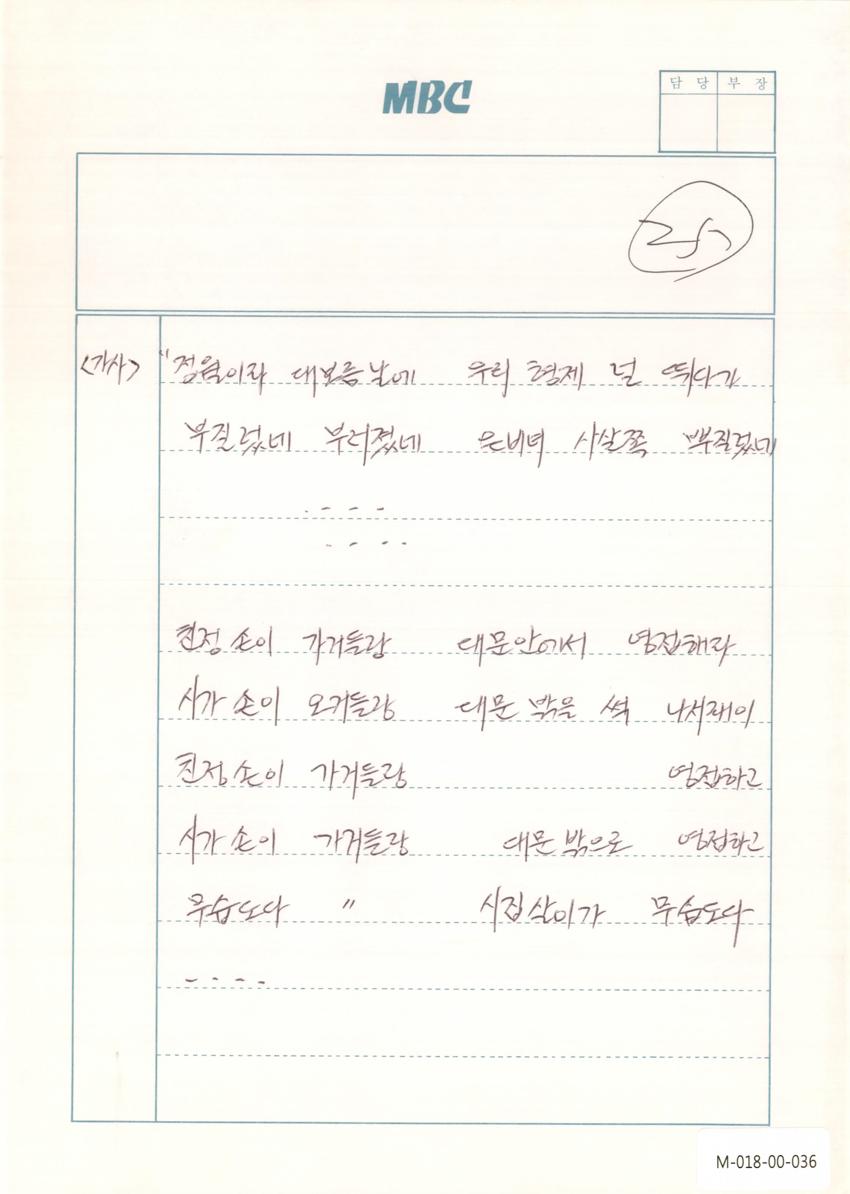 MBC
담 당 부 장
25
<가사> "정월이라 대보름날에 우리 형제 널 뛰다가
부질렀네 부러졌네 은비녀 사살쪽 뿌질렀네
- - - -
- - - -
친정 손이 가거들랑 대문안에서 영접해라
시가 손이 오거들랑 대문 밖을 썩 나서재이
친정 손이 가거들랑 영접하고
시가 손이 가거들랑 대문 밖으로 영접하고
무습도다 " 시집살이가 무습도다
- - - -
M-018-00-036